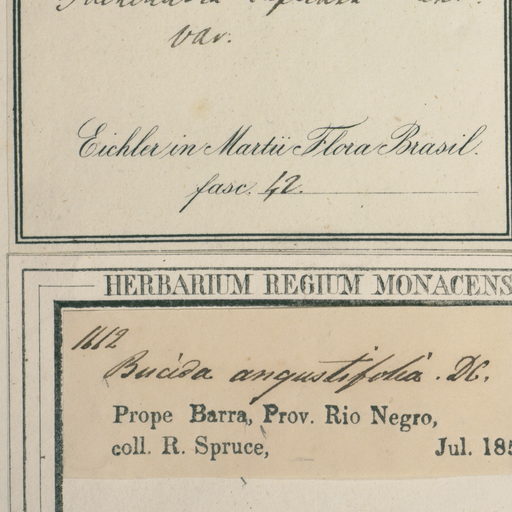 var.
Eichler in Martii Flora Brasil.
fasc. 42.
HERBARIUM REGIUM MONACENS
1612
Bucida angustifolia. DC.
Prope Barra, Prov. Rio Negro,
coll. R. Spruce, Jul. 185